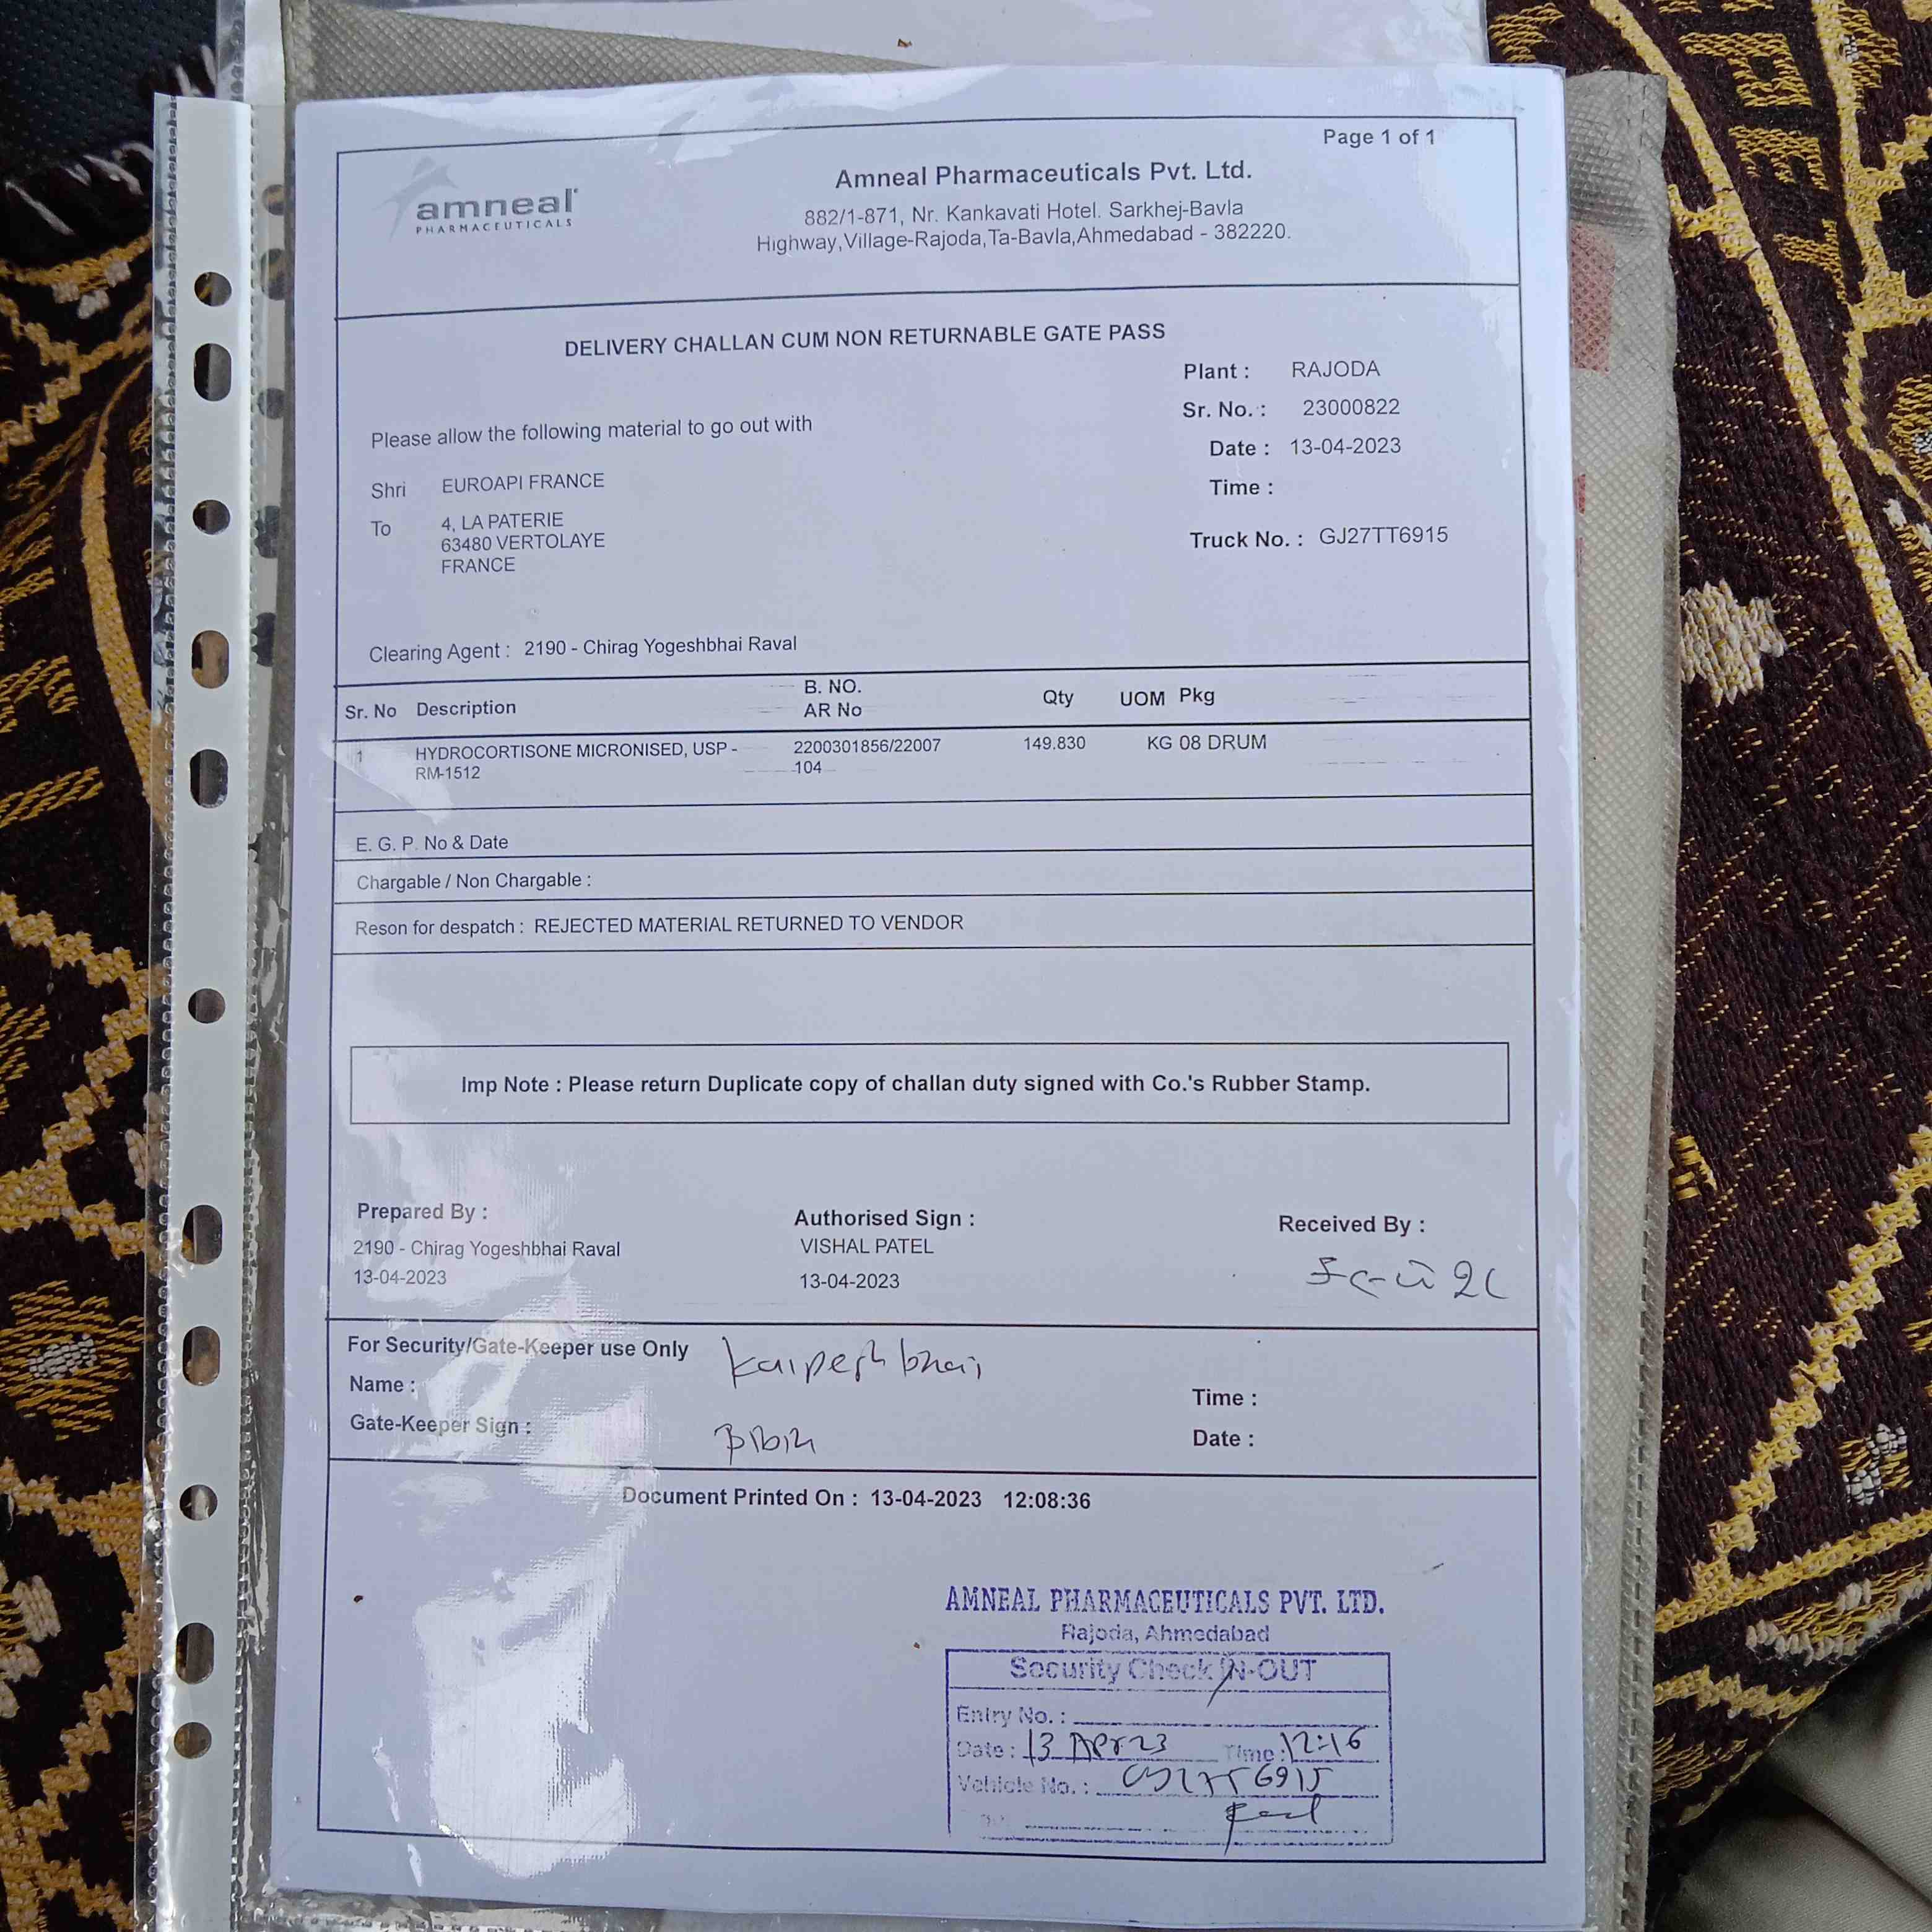 Page 1 of 1
amneal
PHARMACEUTICALS
Amneal Pharmaceuticals Pvt. Ltd.
882/1-871, Nr. Kankavati Hotel. Sarkhej-Bavla
Highway,Village-Rajoda,Ta-Bavla,Ahmedabad - 382220.
DELIVERY CHALLAN CUM NON RETURNABLE GATE PASS
Plant : RAJODA
Sr. No. : 23000822
Date : 13-04-2023
Time :
Truck No. : GJ27TT6915
Please allow the following material to go out with
Shri EUROAPI FRANCE
To 4, LA PATERIE
63480 VERTOLAYE
FRANCE
Clearing Agent : 2190 - Chirag Yogeshbhai Raval
Sr. No Description B. NO. Qty UOM Pkg
AR No
1 HYDROCORTISONE MICRONISED, USP - 2200301856/22007 149.830 KG 08 DRUM
RM-1512 104
E. G. P. No & Date
Chargable / Non Chargable :
Reson for despatch : REJECTED MATERIAL RETURNED TO VENDOR
Imp Note : Please return Duplicate copy of challan duty signed with Co.'s Rubber Stamp.
Prepared By : Authorised Sign : Received By :
2190 - Chirag Yogeshbhai Raval VISHAL PATEL
13-04-2023 13-04-2023
For Security/Gate-Keeper use Only
Name : Kalpesh bhai
Gate-Keeper Sign :
Time :
Date :
Document Printed On : 13-04-2023 12:08:36
AMNEAL PHARMACEUTICALS PVT. LTD.
Rajoda, Ahmedabad
Security Check IN-OUT
Entry No. :
Date : 13 Apr 23 Time : 12:16
Vehicle No. : 6915